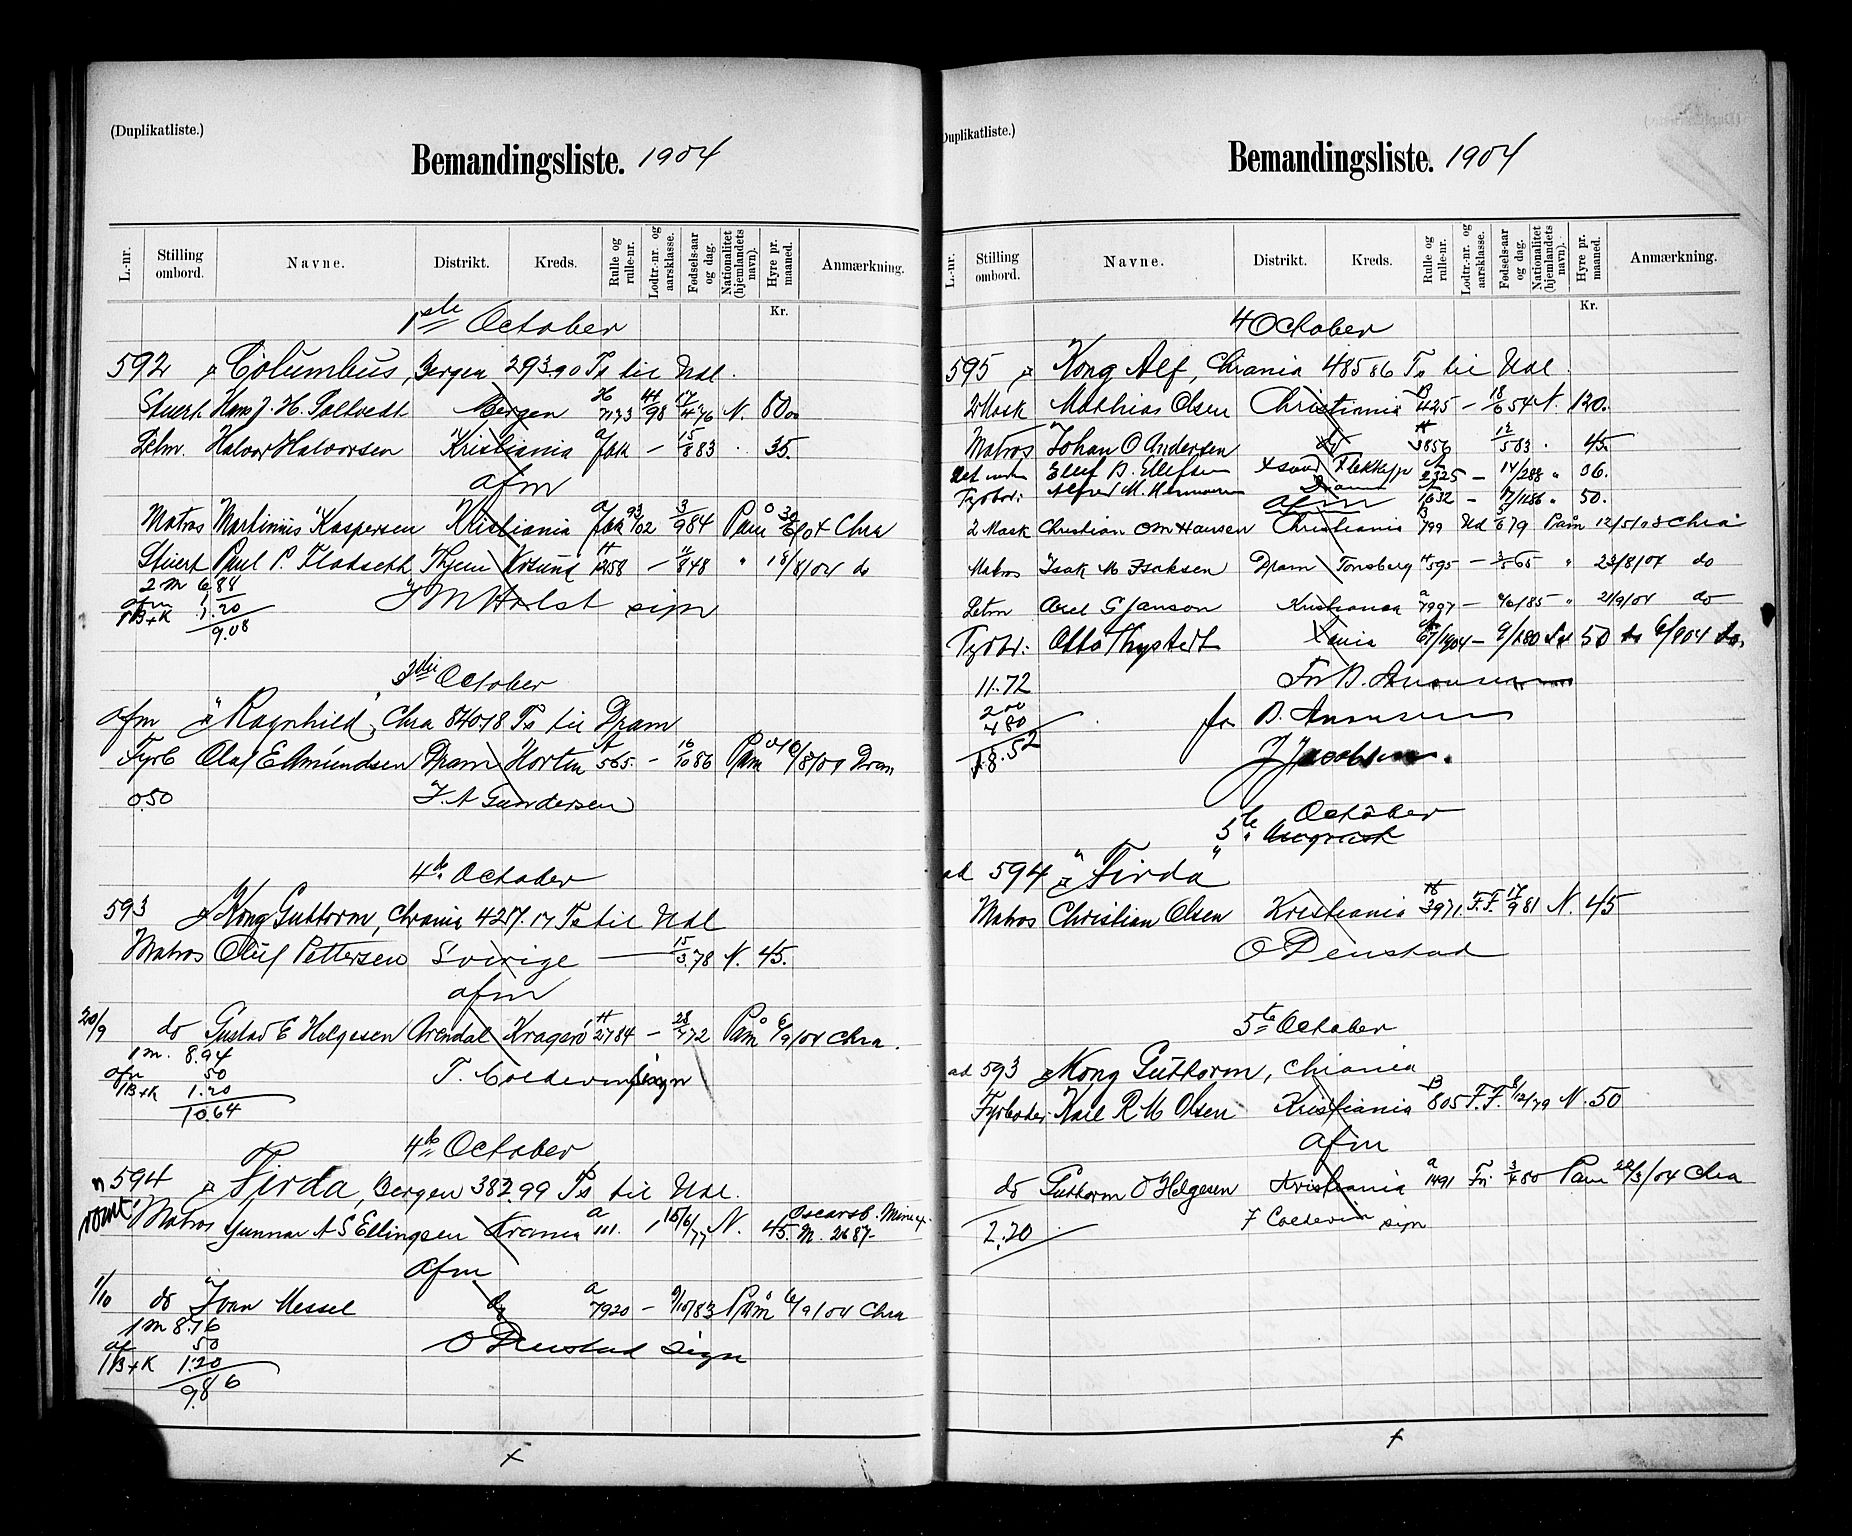 (Duplikatliste.)
Bemandingsliste. 1904
L.-nr. Stilling ombord. Navne. Distrikt. Kreds. Rulle og rulle-nr. Lodtr.-nr. og aarsklasse. Fødsels-aar og dag. Nationalitet (hjemlandets navn). Hyre pr. maaned. Anmærkning.
Kr.
1ste October
592 Columbus, Bergen 293.90 Ts til Udl.
Stuert Hans J. H. Tallvedt Bergen 7133 44/98 17/4 76 N. 80 00
Letm. Halvor Halvorsen Kristiania a/fak — 15/8 83 35.
afm
Matros Martinius Kaspersen Kristiania 93/02 3/9 84 Paam 30/6/04 Chra
Stuert Paul P. Flatseth Thjem Krsund 1258 — 848 " 18/8/04 do
2 m 6.88
afm 1
1B+K 1.20
9.08
J M Holst sign
3die October
afm "Ragnhild", Chra 840.18 Ts til Dram
Fyrb Olaf E Amundsen Dram Horten 565. — 16/10 86 Paam 16/8/04 Dram
0.50 J. A Gundersen
4de October
593 Kong Guttorm, Chrania 427.17 Ts til Udl
Matros Oluf Pettersen Sverige — 15/3 78 N. 45.
afm
20/9 do Gustav E Helgesen Arendal Kragerø 2784 — 28/7 72 Paam 6/9/04 Chra.
1 m. 8.94
afm 50
1B+K 1.20
10.64
T. Coldevin sign
4de October
594 Firda, Bergen 382.99 Ts til Udl.
Matros Gunnar A S Ellingsen Krania a 111. 1 15/6/77 N. 45. Oscarsb. Minex. M. 2687
afm
1/10 do Ivan Messel do a 7920 — 9/10/83 Paam 6/9/04 Chra
1 m 8.16
af 50
1B+K 1.20
9.86
O Denstad sign
x
Duplikatliste.)
Bemandingsliste. 1904
L.-nr. Stilling ombord. Navne. Distrikt. Kreds. Rulle og rulle-nr. Lodtr.-nr. og aarsklasse. Fødsels-aar og dag. Nationalitet (hjemlandets navn). Hyre pr. maaned. Anmærkning.
Kr.
4 October
595 Kong Alf, Chrania 485 86 Ts til Udl
2 Mask Mathias Olsen Christiania B 425 — 18/6 54 N. 120.
Matros Johan O Andersen do H 3856 12/5 83 . 45.
Ellef B. Ellefsen Flekkefj 2325 — 14/2 88 " 36.
Fyrbø: Alfred M. Dram afm 1632 — 17/11 86 " 50.
2 Mask Christian O M Hansen Christiania B 799 Ud 5/6 79 Paam 12/5/03 Chra
Matros Isak M Isaksen Dram Tønsberg H 595 — 3/5 65 " 23/8/04 do
Letm Axel G Janson Kristiania a 7997 — 4/6/85 " 21/9/04 do
Fyrbø: Otto Thystedt Xania 67/1904 — 9/1 80 50 do 6/904 do.
11.72
2 00
4 80
18.52
for B.
J Jacobsen.
October
5te
ad 594 "Firda"
Matros Christian Olsen Kristiania H 3971. F.F. 17/9 81 N. 45
O Denstad
5te October
ad 593 Kong Guttorm, Chiania
Fyrbøder Karl R M Olsen Kristiania B 805 F.F. 8/12/79 N. 50
afm
do Guttorm O Helgesen Kristiania a 1491 Fri. 3/7 80 Paam 22/3/04 Chra
2.20
T Coldevin sign
x